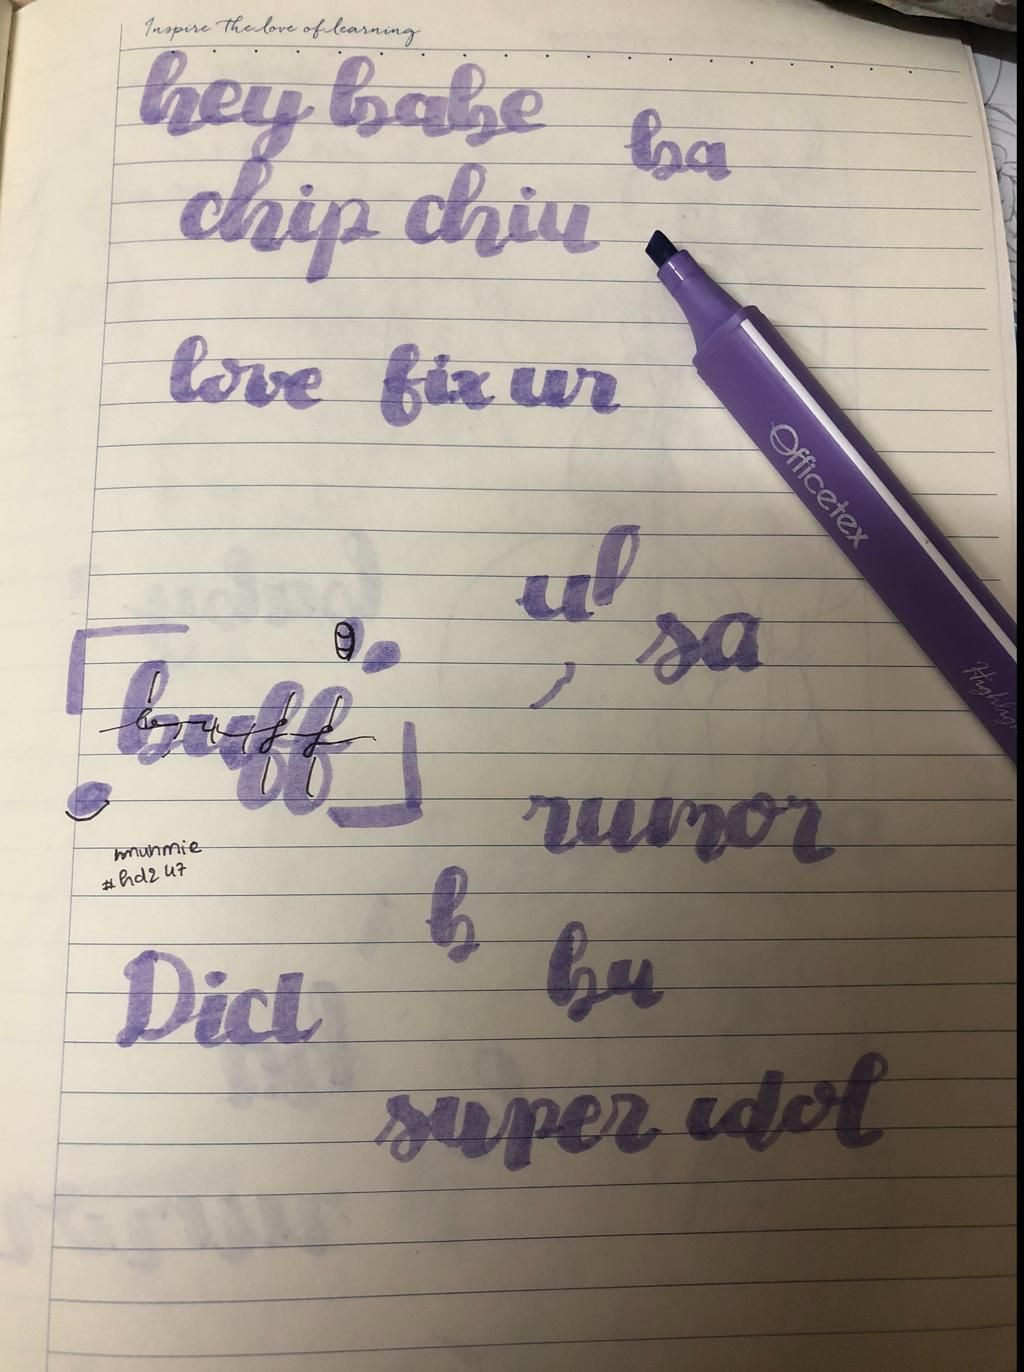 Inspire the love of learning
hey babe
ba
chip chiu
love fix ur
Officetex
ul
sa
buff
rumor
#hd247
b
bu
super idol